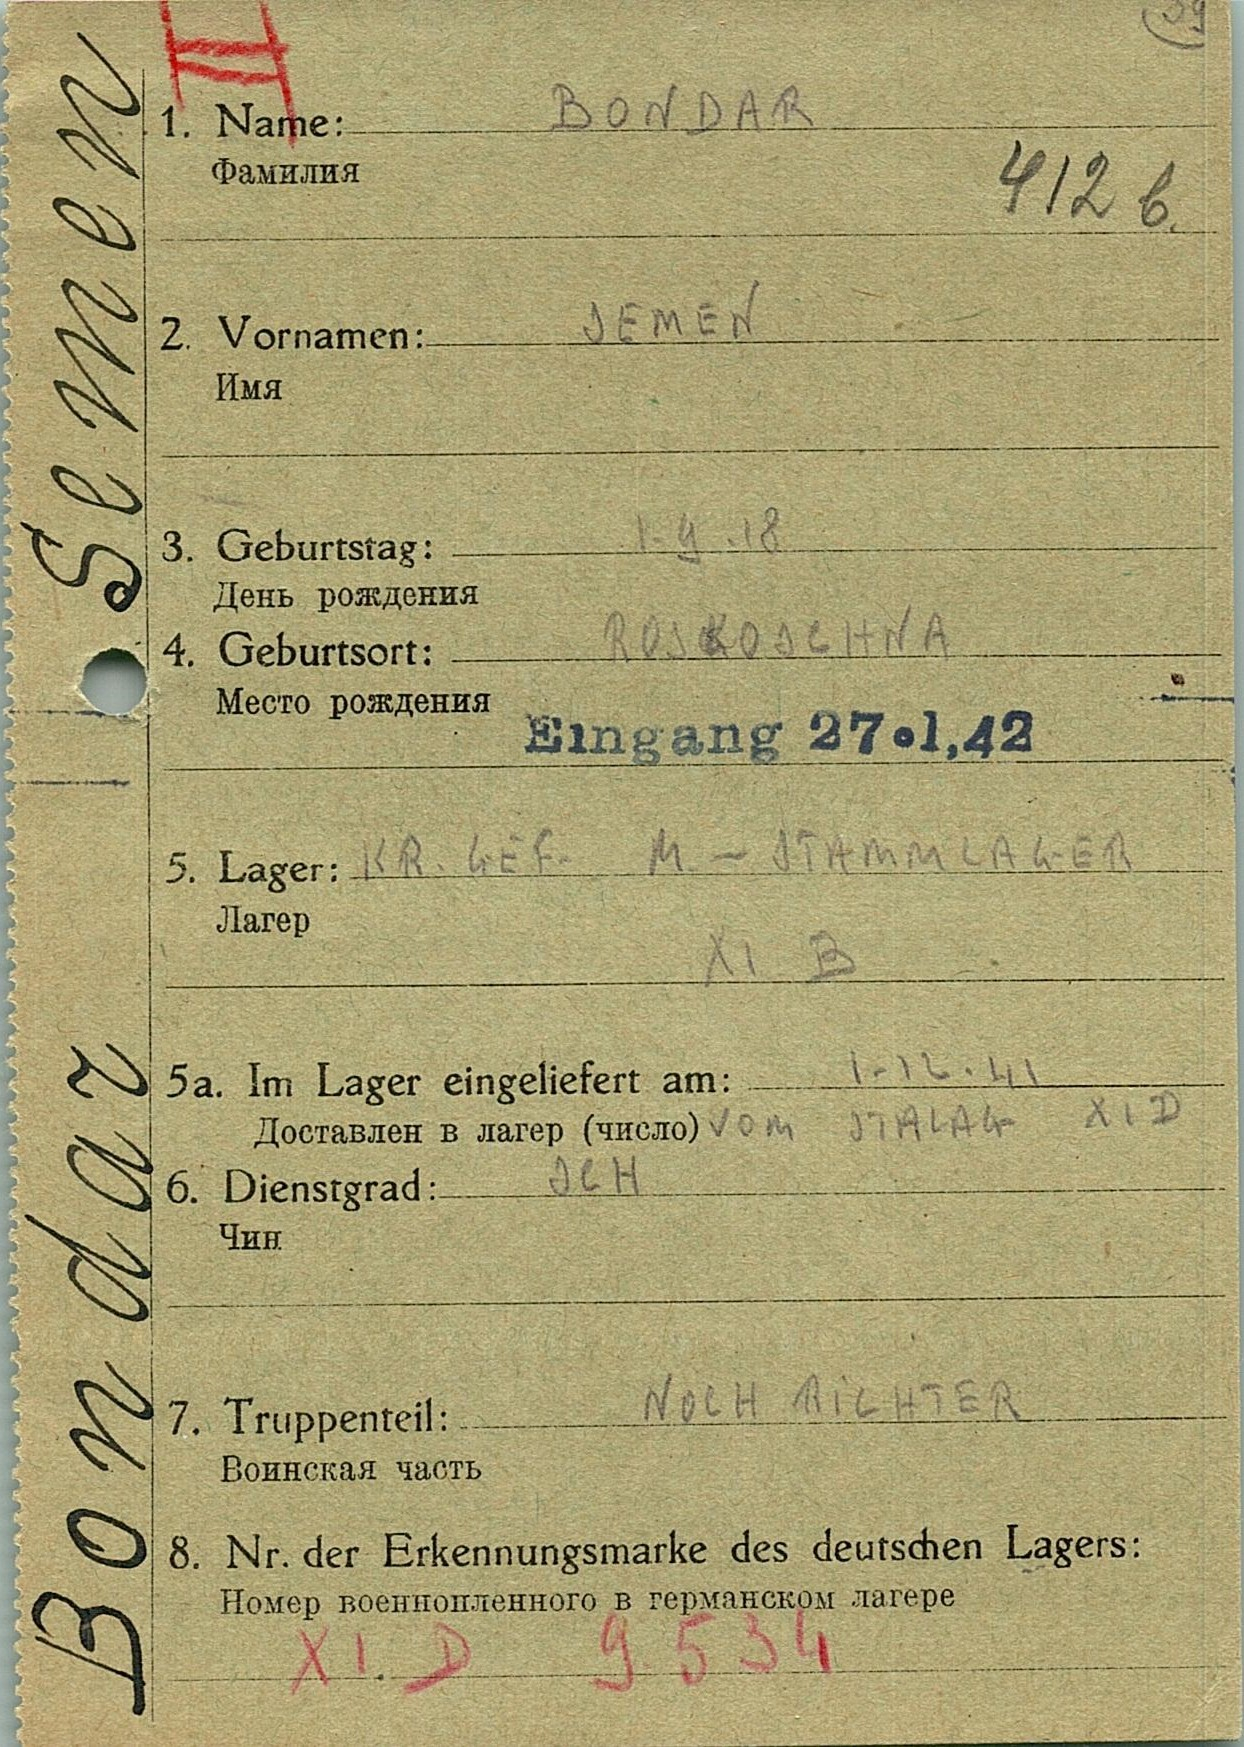 II
39
1. Name: BONDAR
Фамилия
412 b.
2. Vornamen: SEMEN
Имя
3. Geburtstag: 1.9.18
День рождения
4. Geburtsort: ROSKOSCHNA
Место рождения
Eingang 27.1.42
5. Lager: KR. GEF. M. - STAMMLAGER
Лагер
XI B
5a. Im Lager eingeliefert am: 1.12.41
Доставлен в лагер (число) VOM STALAG XI D
6. Dienstgrad: SCH
Чин
7. Truppenteil: NOCH RICHTER
Воинская часть
8. Nr. der Erkennungsmarke des deutschen Lagers:
Номер военнопленного в германском лагере
XI. D 9534
Bondar Semen